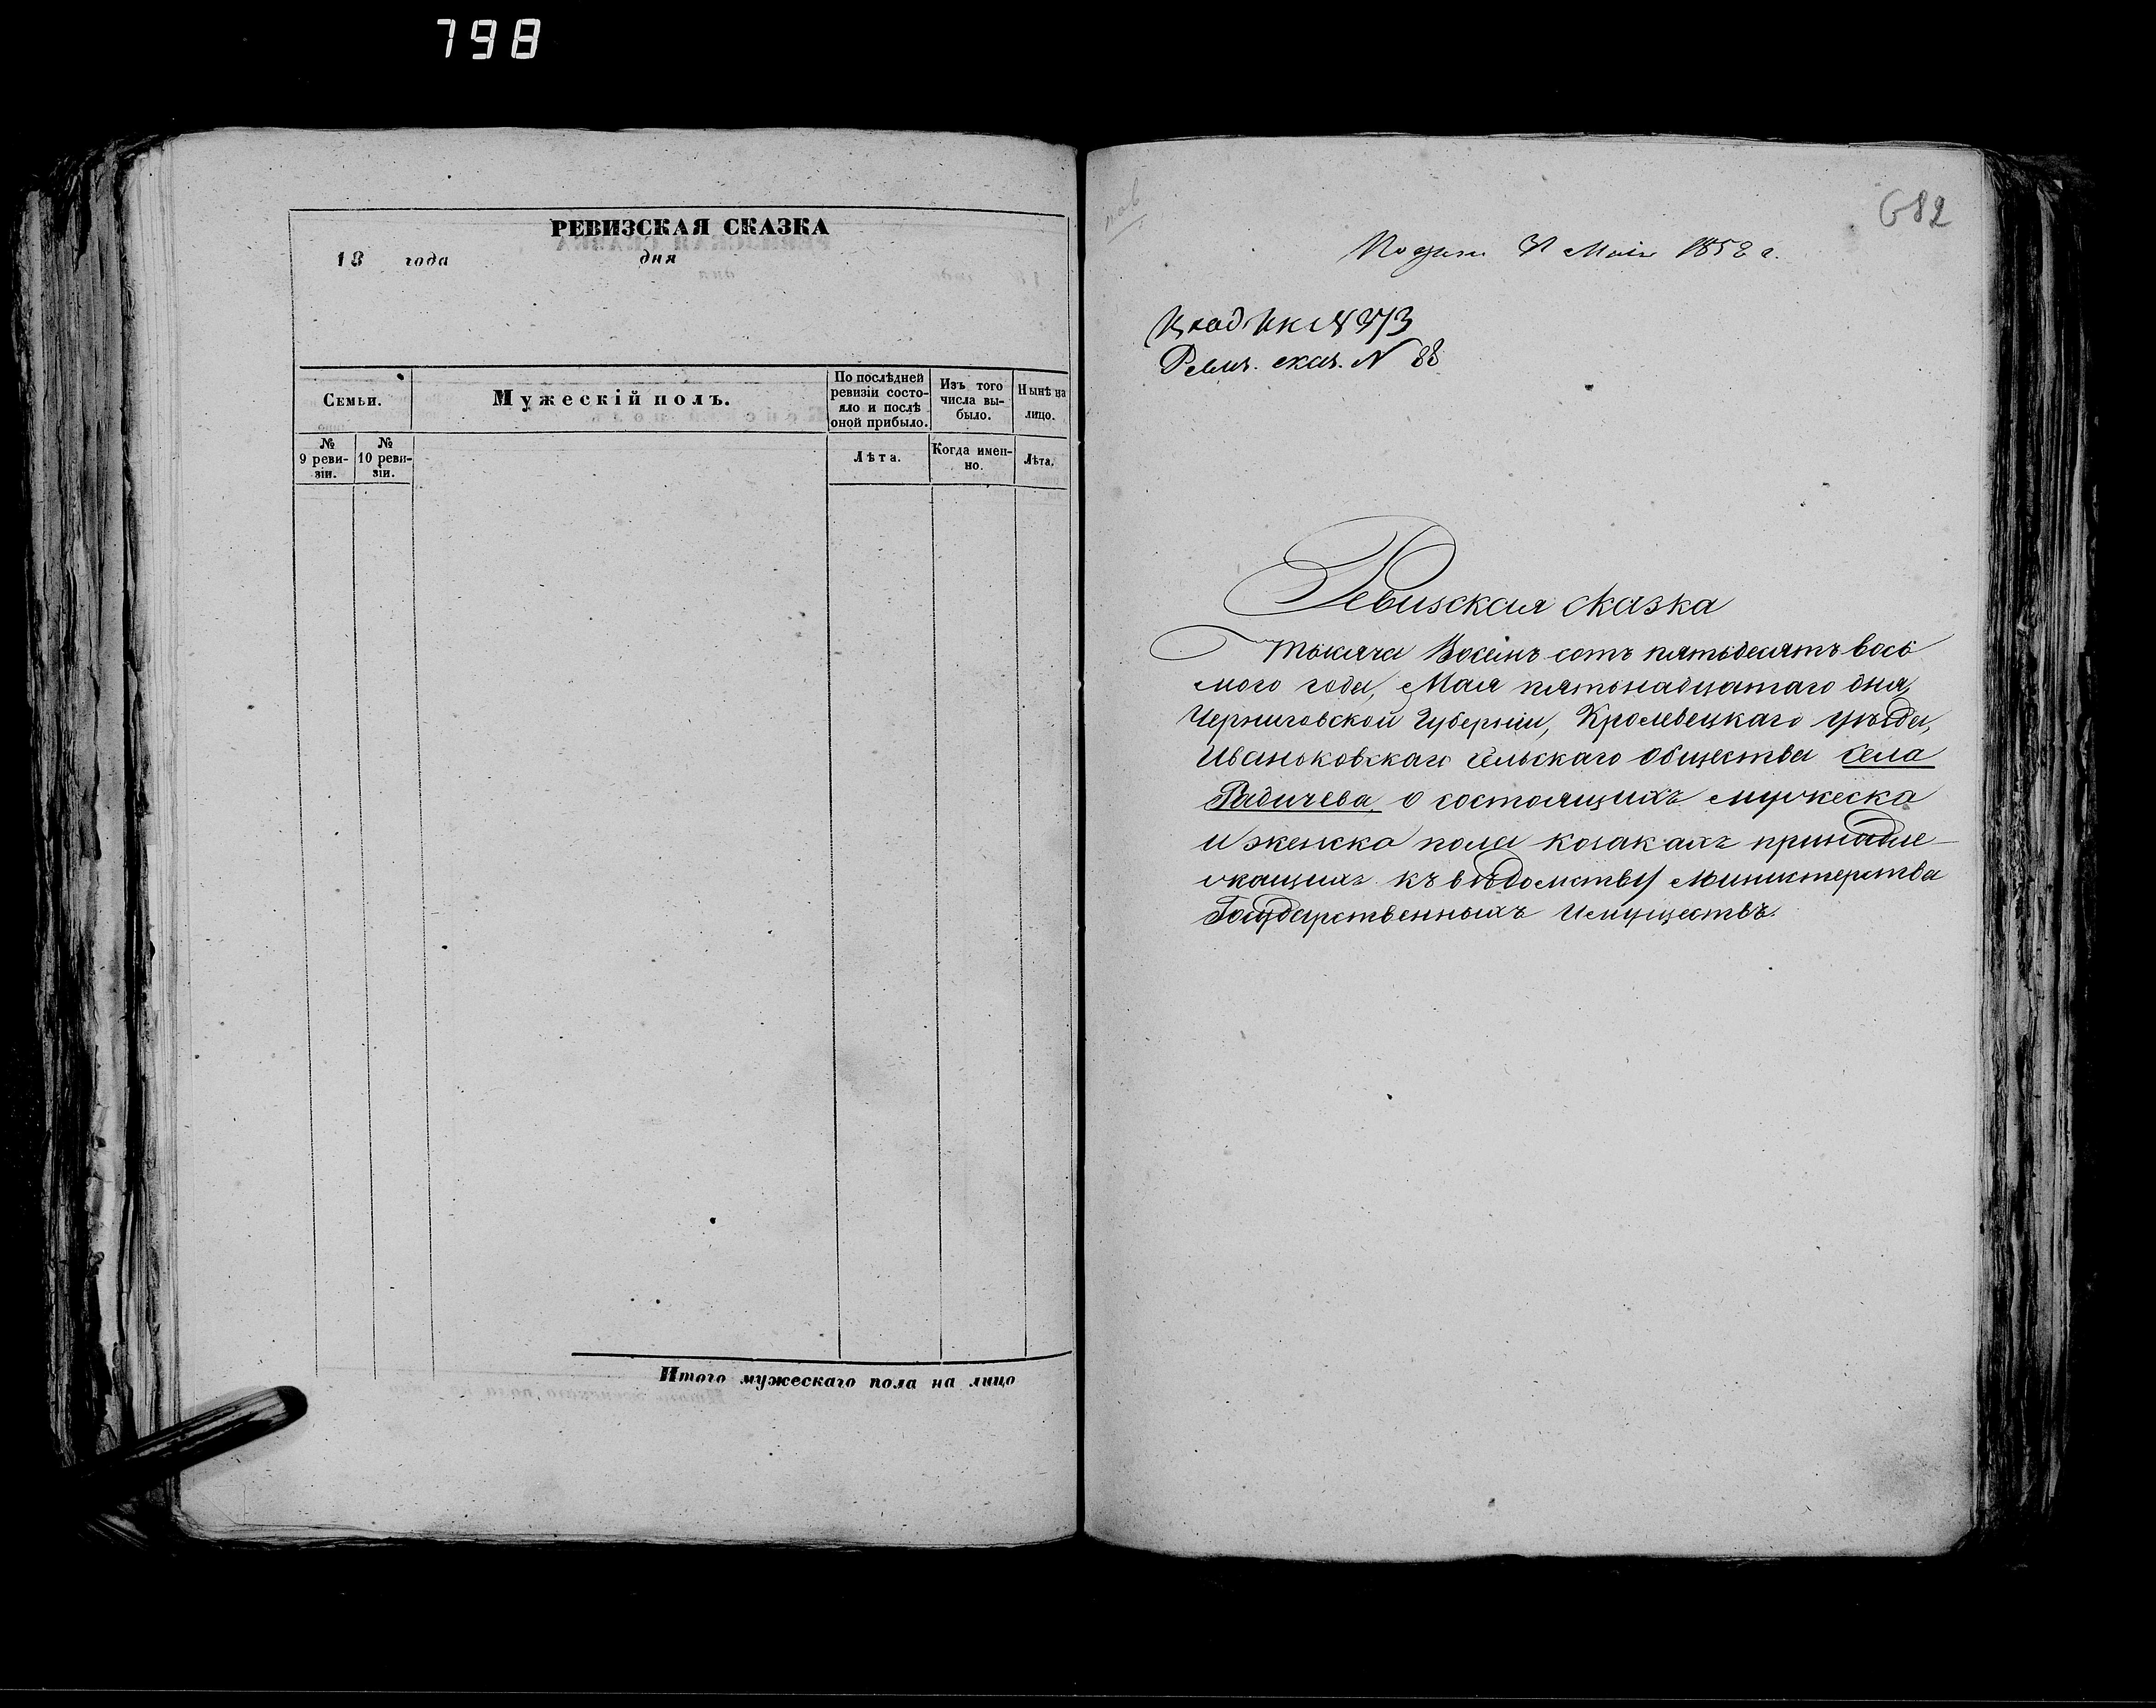 798
РЕВИЗСКАЯ СКАЗКА
18 года дня
Семьи.
Мужескій полъ.
По послѣдней ревизіи состояло и послѣ оной прибыло.
Изъ того числа выбыло.
Нынѣ на лицо.
№ 9 ревизіи.
№ 10 ревизіи.
Лѣта.
Когда именно.
Лѣта.
Итого мужескаго пола на лицо
682
Мая 1858 г.
Ревиз. сказ. N 88
Ревизская сказка
Тысяча Восемь сотъ пятьдесятъ вось
мого года, Мая пятьнадцатаго дня,
Черниговской Губерніи, Кролевецкаго уѣзда,
Иваньковскаго Сельскаго Общества села
Радичева о состоящихъ мужеска
и женска пола козакахъ принадле-
жащихъ къ вѣдомству Министерства
Государственныхъ Имуществъ.